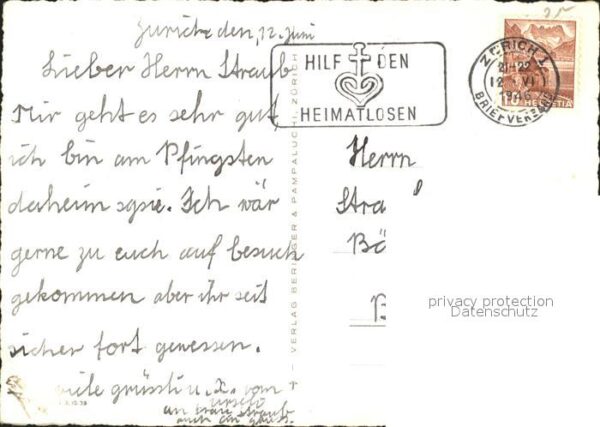 Zürich den, 12. Juni
Lieber Herrn Straub
Mir geht es sehr gut,
ich bin am Pfingsten
daheim xgsie. Ich wär
gerne zu euch auf besuch
gekommen aber ihr seit
sicher fort gewessen.
viele grüssli u. x. vom
an Frau Straub
auch ein gruss.
HILF DEN
HEIMATLOSEN
ZÜRICH 1
21-22
12. VI
1946
BRIEFVERSAND
10 HELVETIA
VERLAG BERINGER & PAMPALUCHI, ZÜRICH
Herrn
Stra
Bö
privacy protection
Datenschutz